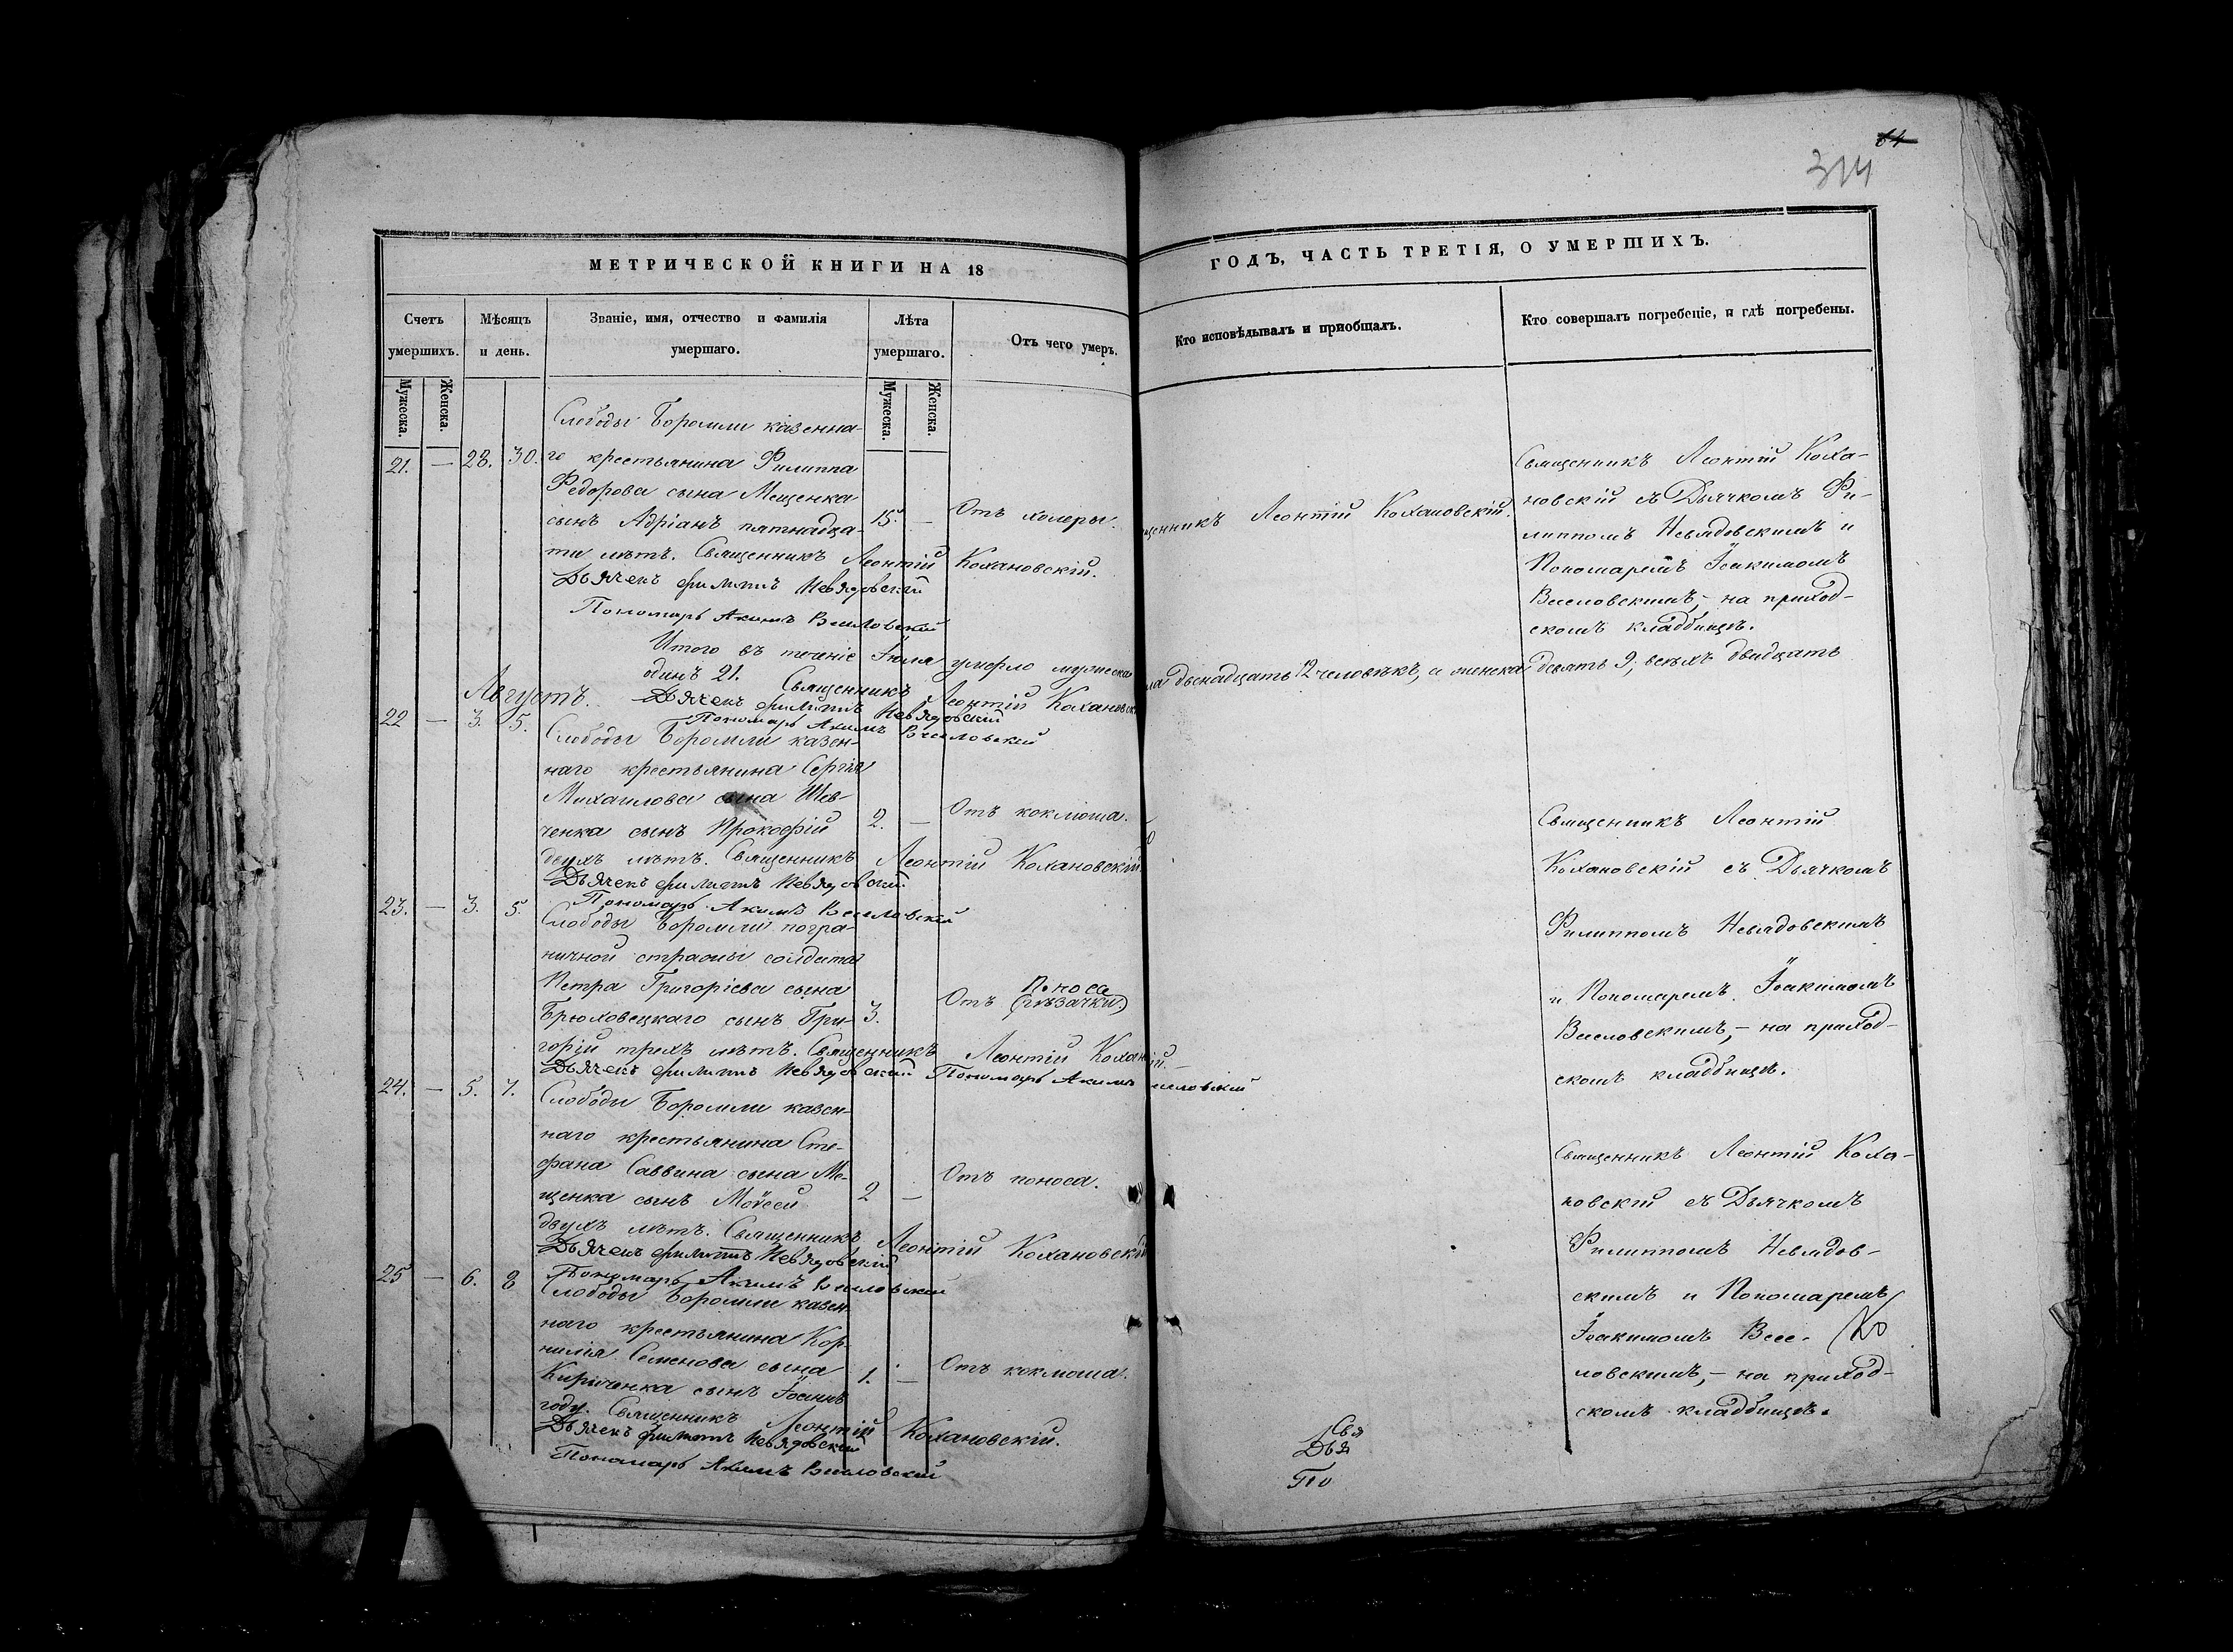 64
314
МЕТРИЧЕСКОЙ КНИГИ НА 18
ГОДЪ, ЧАСТЬ ТРЕТІЯ, О УМЕРШИХЪ.
Счетъ умершихъ.
Мѣсяцъ и день.
Званіе, имя, отчество и фамилія умершаго.
Лѣта умершаго.
Отъ чего умеръ.
Кто исповѣдывалъ и пріобщалъ.
Кто совершалъ погребеніе, и гдѣ погребены.
Мужеска.
Женска.
Мужеска.
Женска.
Слободы Боромли казенна-
21. — 28. 30. го крестьянина Филиппа
Федорова сына Мещенка
сынъ Адріанъ пятнадца- 15. — Отъ холеры.
ти лѣтъ. Священникъ Леонтій Кохановскій.
Дьячекъ Филиппъ Невядовскій
Пономарь Акимъ Веселовскій
щенникъ Леонтій Кохановскій.
Священникъ Леонтій Коха-
новскій съ Дьячкомъ Фи-
липпомъ Невядовскимъ и
Пономаремъ Іоакимомъ
Веселовскимъ, – на приход-
скомъ кладбищѣ.
Итого въ теченіе Іюля умерло мужеска
ла двенадцать 12 человѣкъ, а женска девять 9, всѣхъ двадцать
одинъ 21. Священникъ Леонтій Кохановск
Дьячекъ Филиппъ Невядовскій
Пономарь Акимъ Веселовскій
Августъ.
22 — 3. 5. Слободы Боромли казен-
наго крестьянина Сергія
Михаилова сына Шев-
ченка сынъ Прокофій 2. — Отъ коклюша.
двухъ лѣтъ. Священникъ Леонтій Кохановскій
Дьячекъ Филиппъ Невядовскій
Пономарь Акимъ Веселовскій
Священникъ Леонтій
Кохановскій съ Дьячкомъ
Филиппомъ Невядовскимъ
и Пономаремъ Іоакимомъ
Веселовскимъ, – на приход-
скомъ кладбищѣ.
23. — 3. 5. Слободы Боромли погра-
ничной стражи солдата
Петра Григоріева сына
Поноса
Брюховецкаго сынъ Гри- 3. Отъ (рѣзачки)
горій трехъ лѣтъ. Священникъ Леонтій Кохан
Дьячекъ Филиппъ Невядовскій Пономарь Акимъ
24. — 5. 7. Слободы Боромли казен-
наго крестьянина Сте-
фана Саввина сына Ме-
щенка сынъ Моѵсей 2 — Отъ поноса.
двухъ лѣтъ. Священникъ Леонтій Кохановскій
Дьячекъ Филиппъ Невядовскій
Пономарь Акимъ Веселовскій
Священникъ Леонтій Коха-
новскій съ Дьячкомъ
Филиппомъ Невядов-
скимъ и Пономаремъ
Іоакимомъ Весе-
ловскимъ, – на приход-
скомъ кладбищѣ.
25 — 6. 8 Слободы Боромли казен-
наго крестьянина Кор-
нилія Семенова сына
Кириченка сынъ Іоаннъ 1. — Отъ коклюша.
году. Священникъ Леонтій Кохановскій.
Дьячекъ Филиппъ Невядовскій
Пономарь Акимъ Веселовскій
Свя
Дья
По